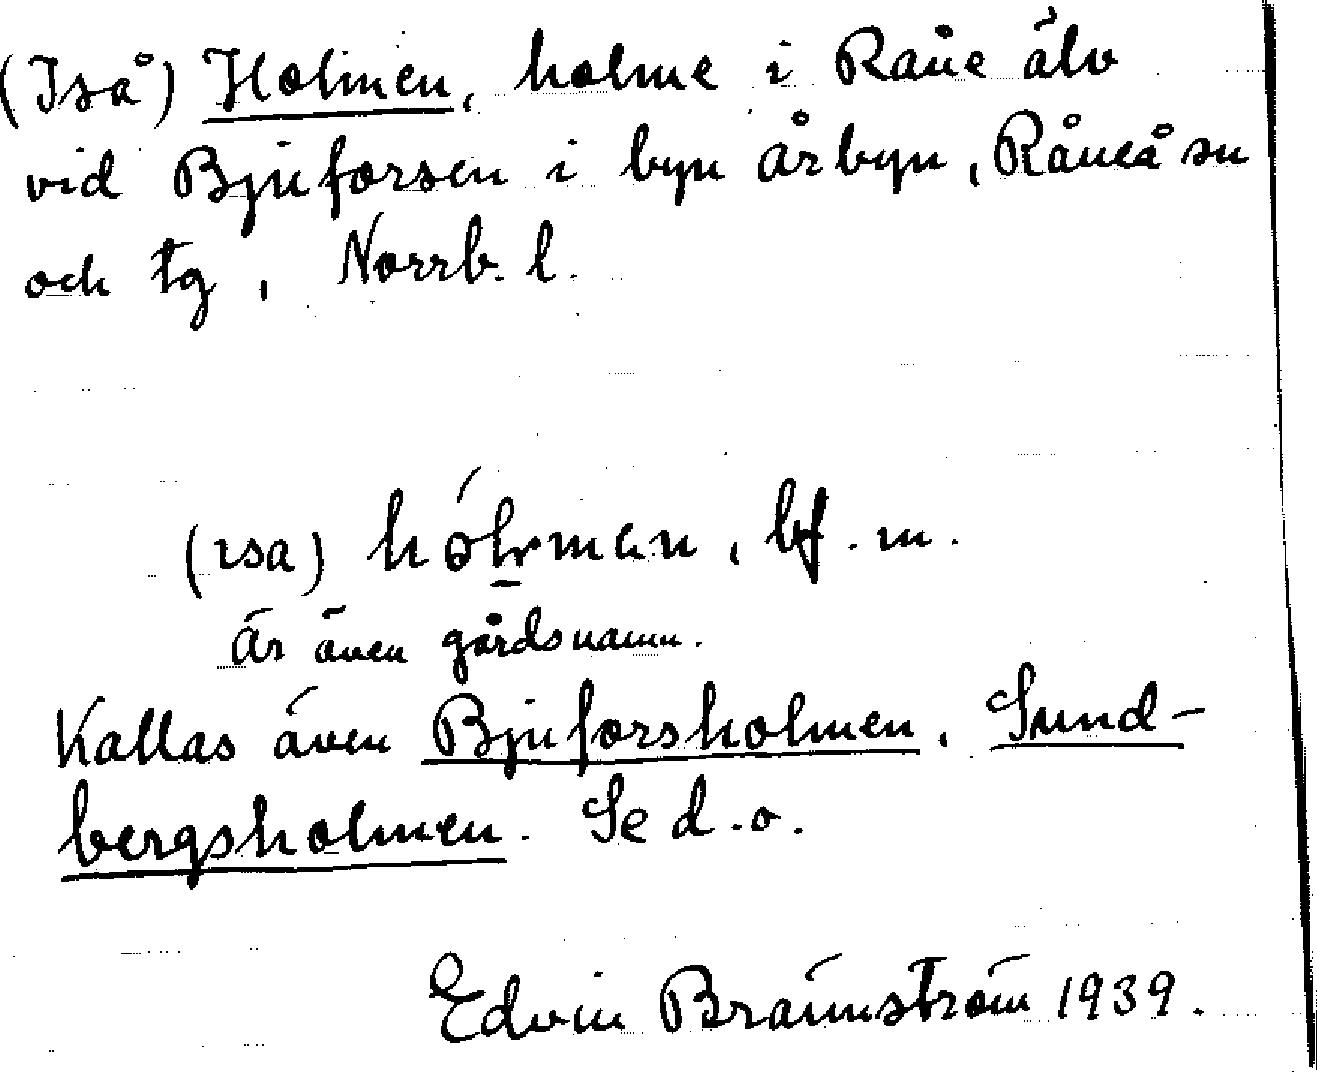 (Iså) Holmen, holme i Råne älv
vid Bjuforsen i byn Årbyn, Råneå sn
och tg, Norrb. l.
(ısa) hólmɛn, bf. m.
Är även gårdsnamn.
Kallas även Bjuforsholmen, Sund-
bergsholmen. Se d.o.
Edvin Brännström 1939.